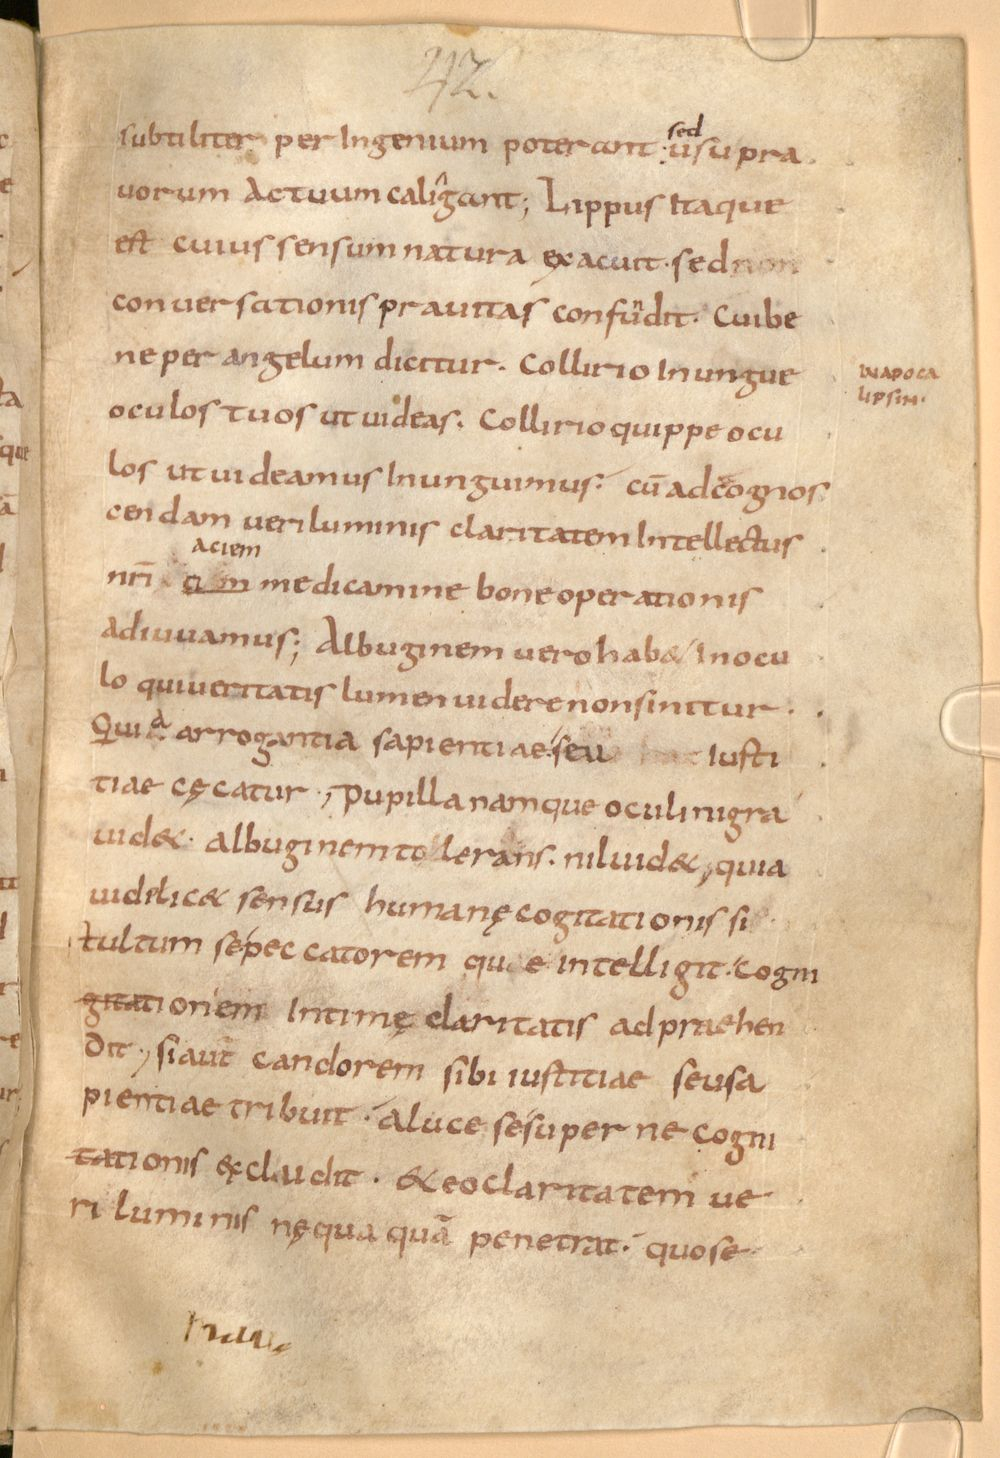 42.
subtiliter per Ingenium poterant: sed usu pra
uorum Actuum caligant; Lippus Itaque
est cuius sensum natura exacuit. sed non
conuersationis prauitas confundit. Cui be
ne per angelum dicitur. Collirio Inungue
INAPOCA
LIPSIN.
oculos tuos ut uideas. Collirio quippe ocu
los ut uideamus Inunguimus. cū ad cognos
cendam ueri luminis claritatem Intellectus
aciem
nr̄i medicamine bone operationis
Adiuuamus; Albuginem uero hab& In ocu
lo qui ueritatis lumen uidere non sinitur.
Quia arrogantia sapientiae seu Iusti
tiae cęcatur; Pupilla namque oculi nigra
uid&. Albuginem tolerans. nil uid&, quia
uidelic& sensus humanę cogitationis si
tultum se peccatorem que intelligit. cogni
gitationem Intimę claritatis adpraehen
dit; si aut̄ candorem sibi iustitiae seu sa
pientiae tribuit. A luce se supernę cogni
tationis excludit. & eo claritatem ue
ri luminis nequaquā penetrat. quo se